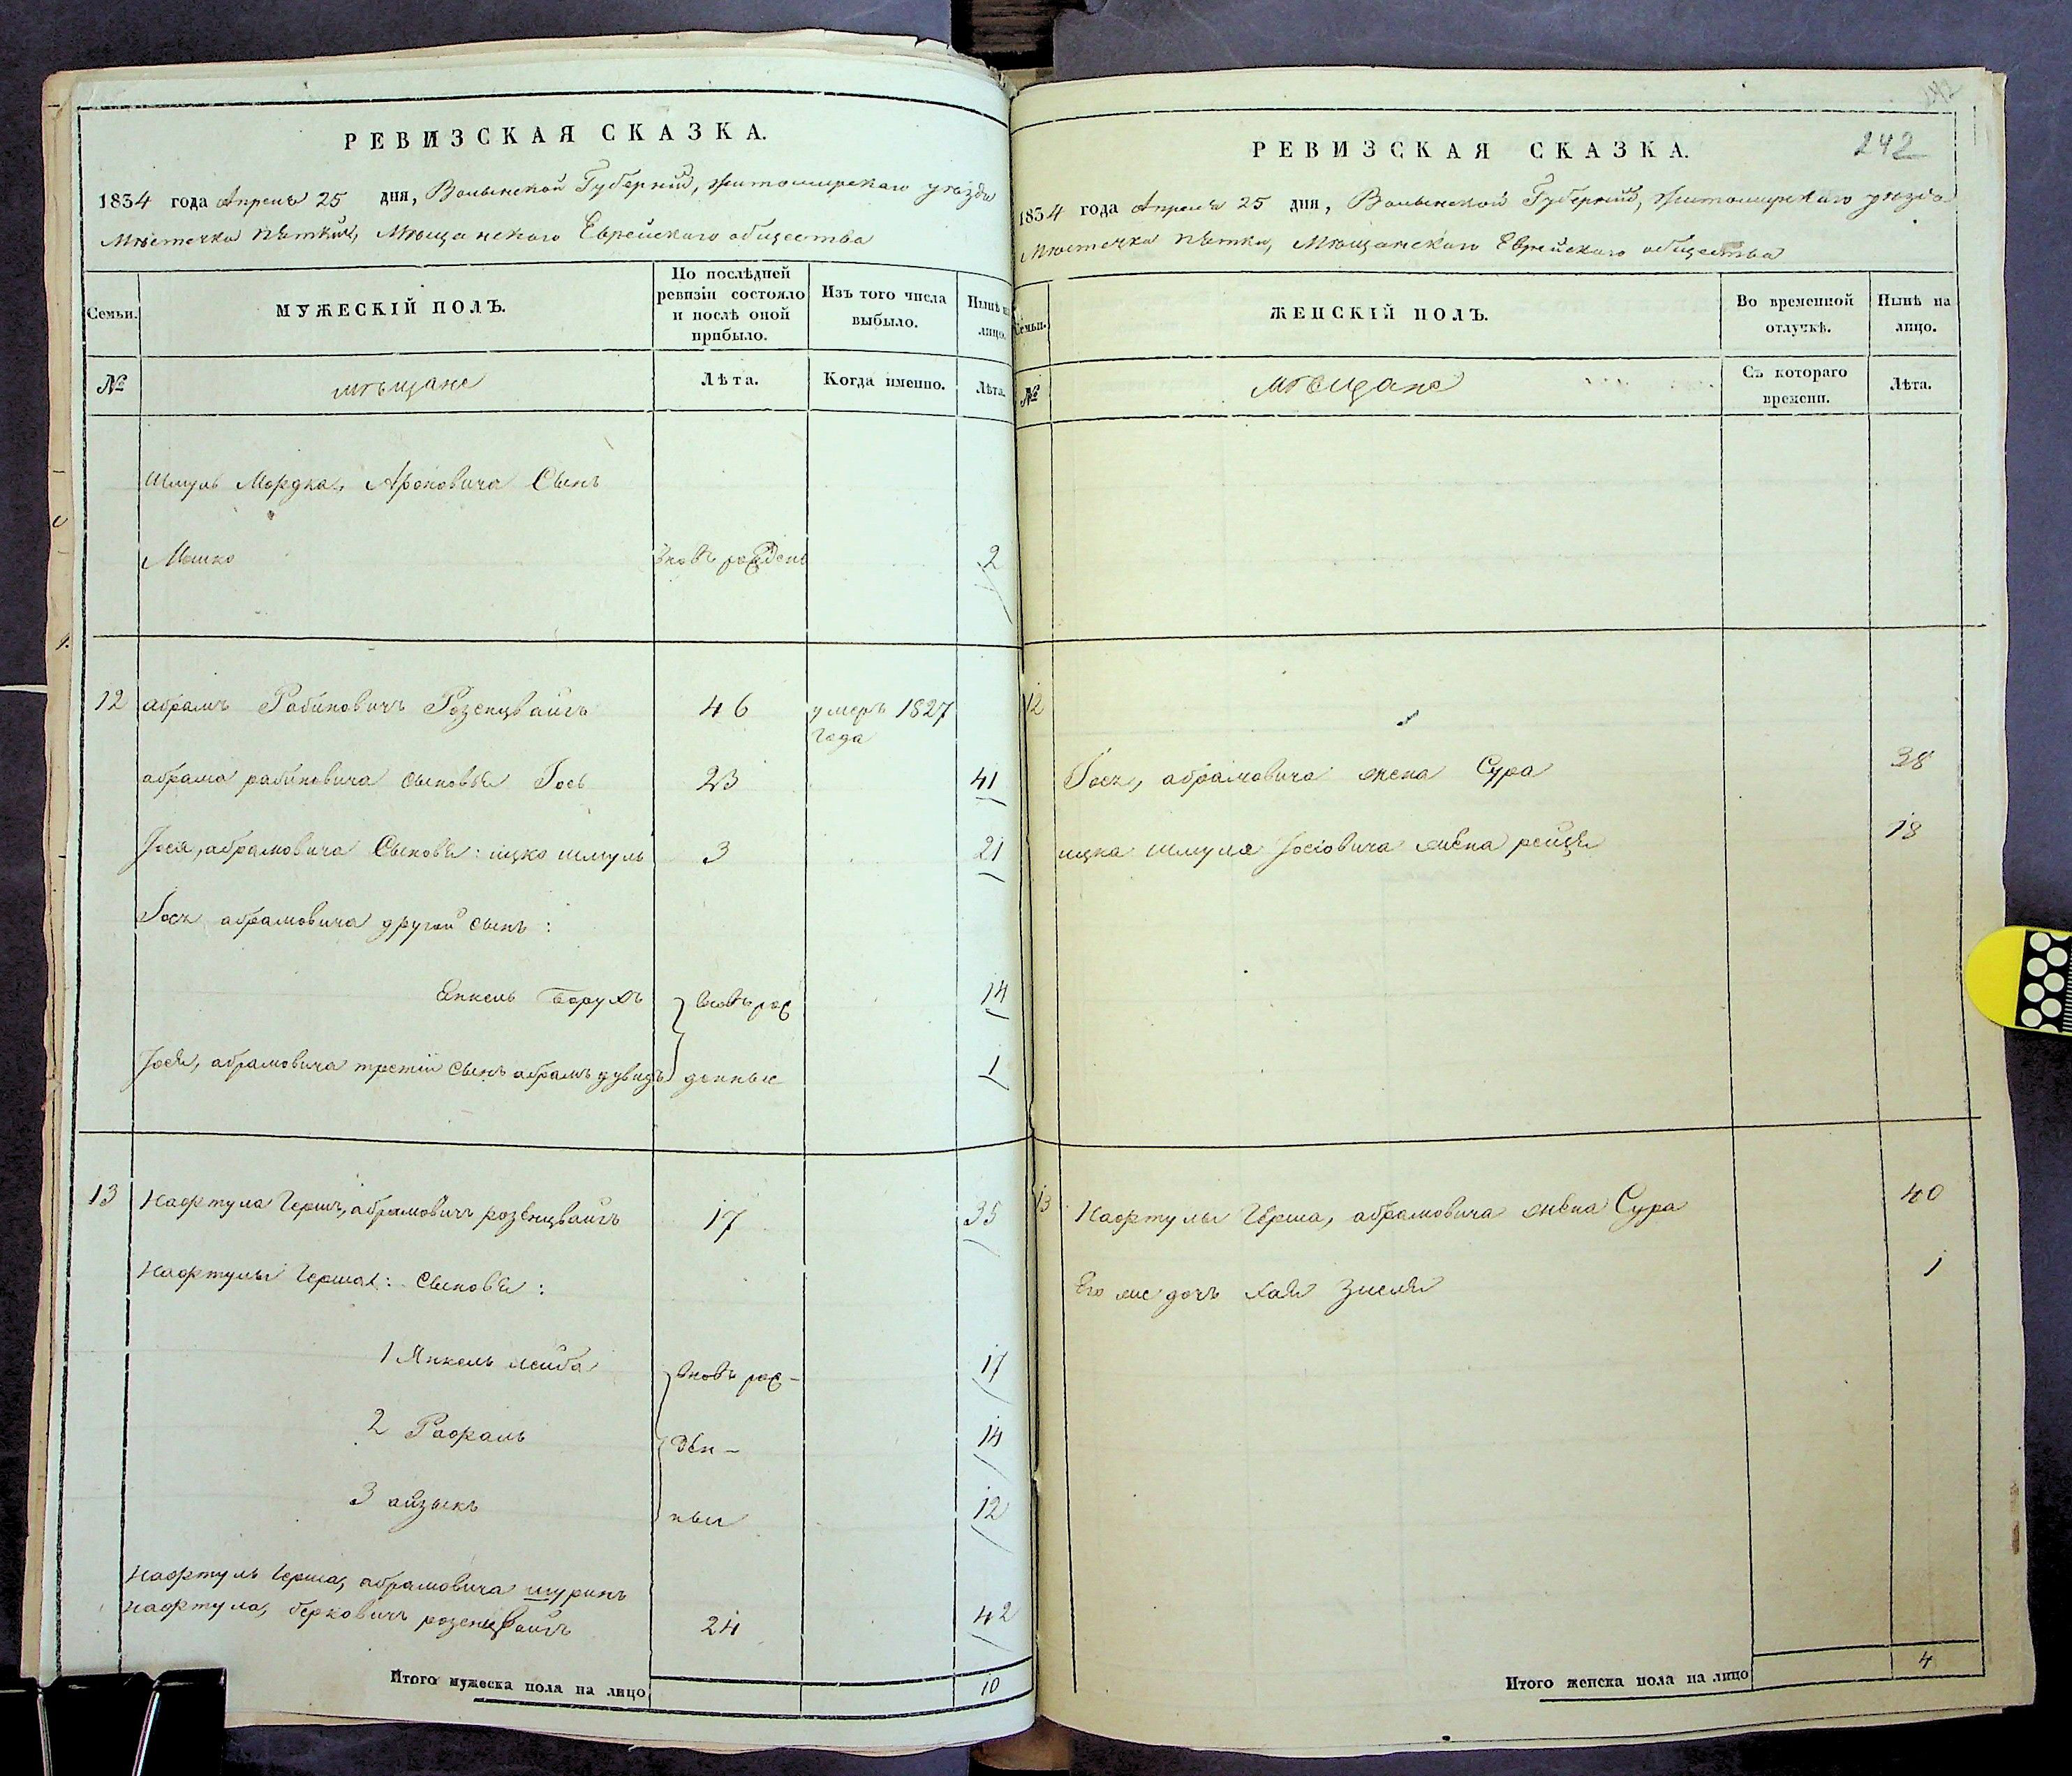 РЕВИЗСКАЯ СКАЗКА.
1834 года Апреля 25 дня, Волынской Губерніи, Житомирскаго уѣзда
Мѣстечка Пятки, Мѣщанскаго Еврейскаго общества
Семьи.
МУЖЕСКІЙ ПОЛЪ.
По послѣдней ревизіи состояло и послѣ оной прибыло.
Изъ того числа выбыло.
Нынѣ на лицо.
№
мѣщане
Лѣта.
Когда именно.
Лѣта.
Шмуль Мордка, Ароновича Сынъ
Мошко вновь рожденъ 2
12 Абрамъ Рабиновичъ Розенцвайгъ 46 умеръ 1827
года
абрама рабиновича сыновья Іось 23 41
Іося, абрамовича Сыновья: ицко шмуль 3 21
Іося абрамовича другой сынъ:
Янкель Борухъ вновь рож 14
Іося, абрамовича третій сынъ абрамъ дувидъ денные 1
13 Нафтула Гершъ, абрамовичъ розенцвайгъ 17 35
Нафтулы Герша: Сыновья:
1 Янкель лейба вновь рож- 17
2 Рафаль ден- 14
3 айзыкъ ные 12
Нафтулы Герша, абрамовича шуринъ
Нафтула, берковичъ розенцвайгъ 24 42
Итого мужеска пола на лицо 10
242
РЕВИЗСКАЯ СКАЗКА.
1834 года Апреля 25 дня, Волынской Губерніи, Житомирскаго уѣзда
Мѣстечка Пятки, Мѣщанскаго Еврейскаго общества
Семьи.
ЖЕНСКІЙ ПОЛЪ.
Во временной отлучкѣ.
Нынѣ на лицо.
№
мѣщане
Съ котораго времени.
Лѣта.
12
Іося, абрамовича жена Сура 38
ицка шмуля Іосіовича жена рейзя 18
13 Нафтулы Герша, абрамовича жена Сура 40
Его же дочь Хая Зисля 1
Итого женска пола на лицо 4